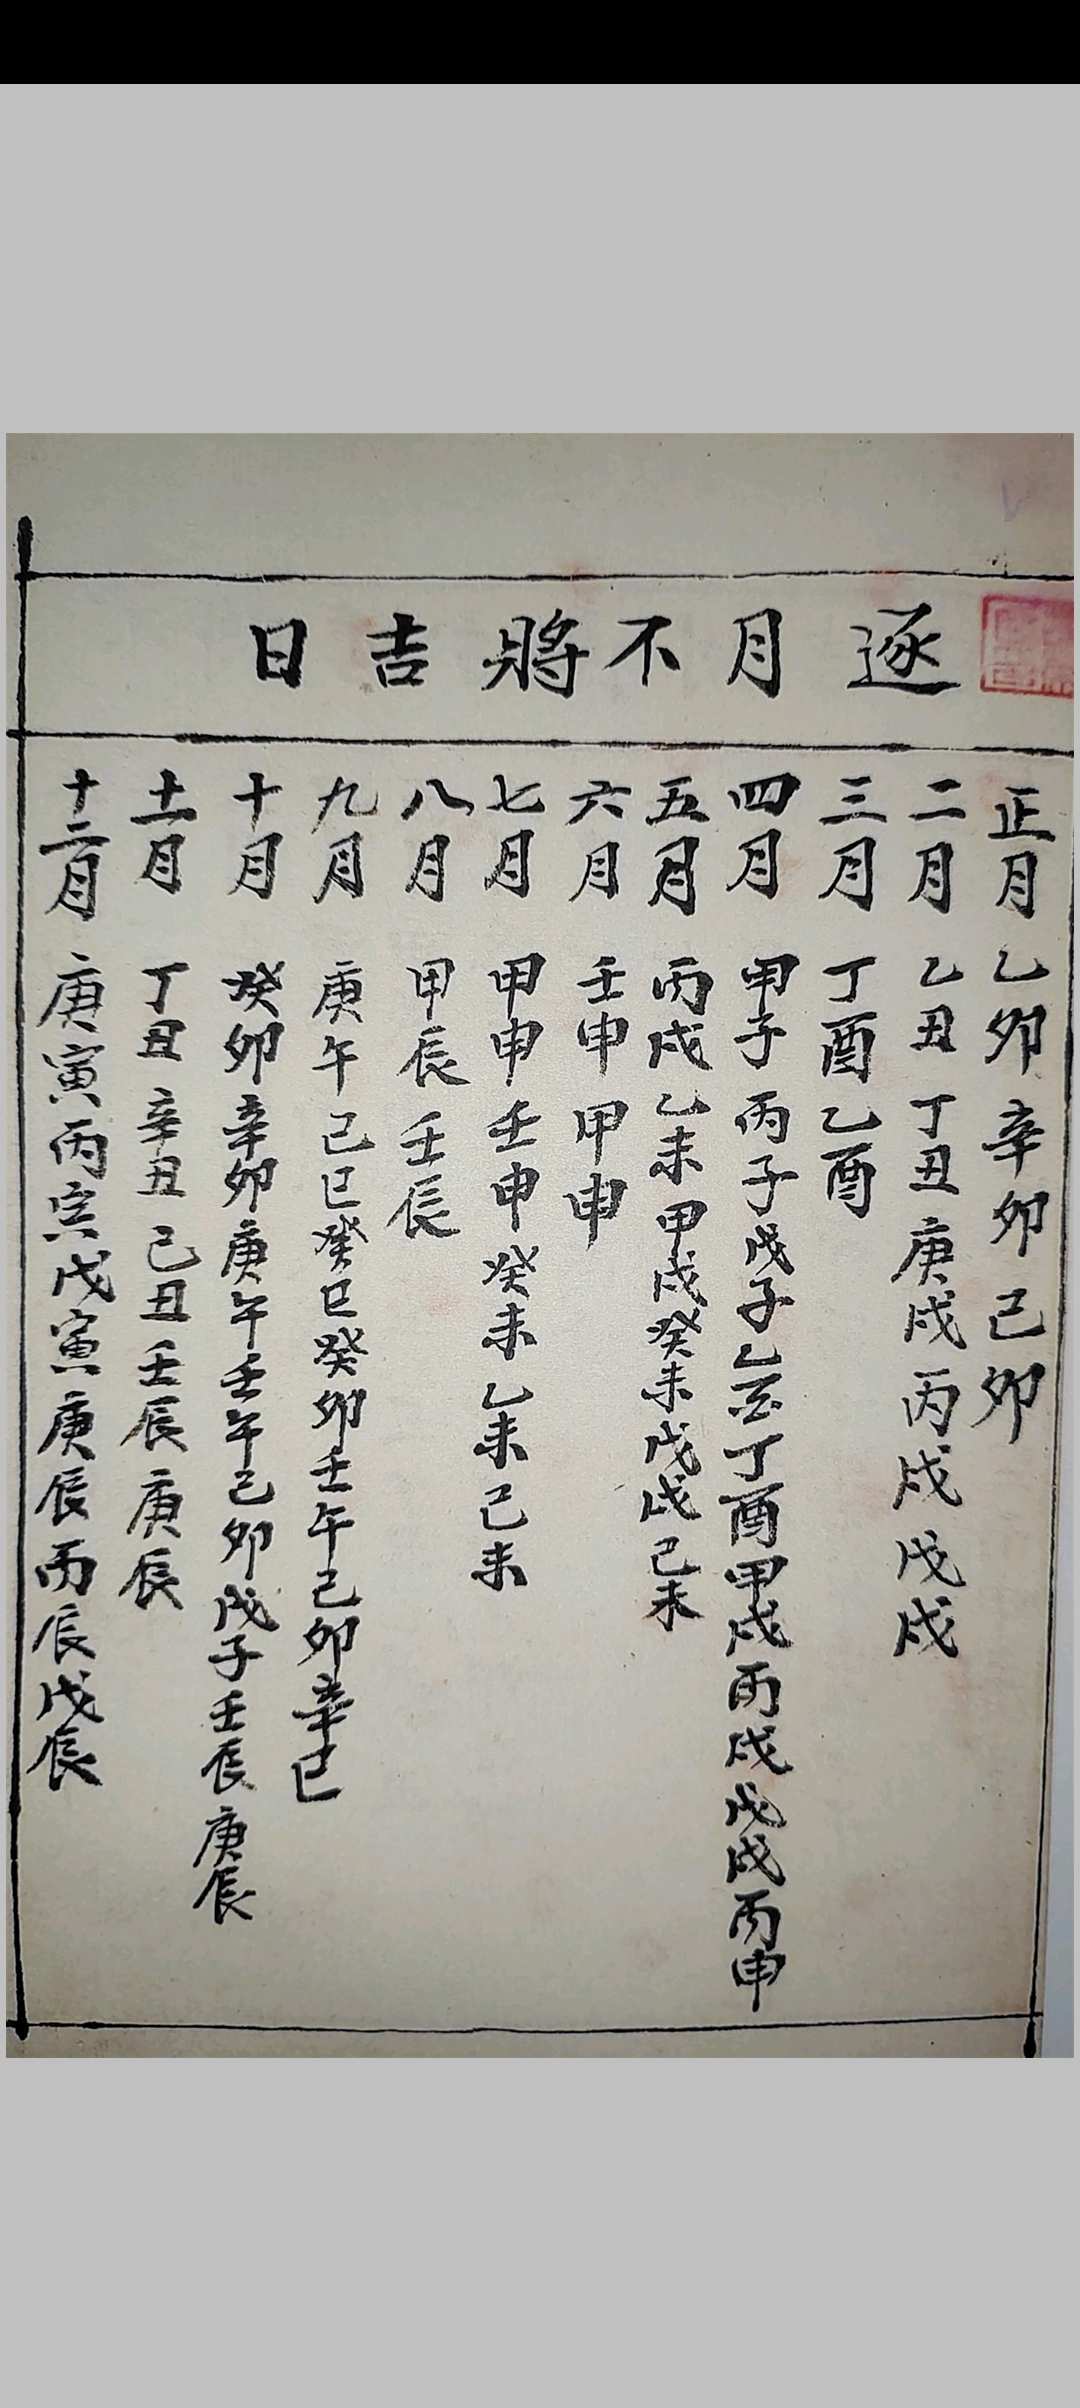 逐月不將吉日
正月 乙卯 辛卯 己卯
二月 乙丑 丁丑 庚戌 丙戌 戊戌
三月 丁酉 乙酉
四月 甲子 丙子 戊子 乙亥 丁酉 甲戌 丙戌 戊戌 丙申
五月 丙戌 乙未 甲戌 癸未 戊戌 己未
六月 壬申 甲申
七月 甲申 壬申 癸未 乙未 己未
八月 甲辰 壬辰
九月 庚午 己巳 癸巳 癸卯 壬午 己卯 辛巳
十月 癸卯 辛卯 庚午 壬午 己卯 戊子 壬辰 庚辰
十一月 丁丑 辛丑 己丑 壬辰 庚辰
十二月 庚寅 丙寅 戊寅 庚辰 丙辰 戊辰